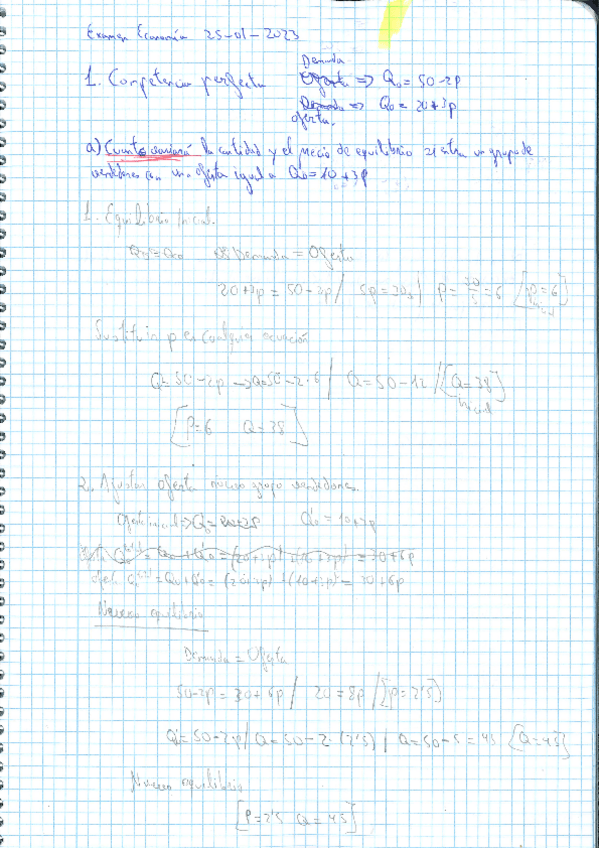 Examen Economía 25-01-2023
Demanda
1. Competencia perfecta Oferta => Qo = 50-2p
Demanda => Qo = 20+3p
oferta.
a) Cuanto variará la cantidad y el precio de equilibrio si entra un grupo de
vendedores con una oferta igual a Qo = 10+3p
1. Equilibrio inicial.
Demanda = Oferta
20+3p = 50-2p / 5p = 30 / p = 30/5 = 6 [p=6]
inicial
Sustituir p en cualquier ecuación
Q = 50-2p → Q=50-2·6 / Q = 50-12 / [Q=38]
inicial
[P=6 Q=38]
2. Ajustar oferta nuevo grupo vendedores.
Oferta inicial => Qo = 20+3p Q'o = 10+3p
= Qo + Q'o = (20+3p) + (10+3p) = 30+6p
= Qo + Q'o = (20+3p) + (10+3p) = 30+6p
Nuevo equilibrio
Demanda = Oferta
50-2p = 30+6p / 20 = 8p / [p=2'5]
Q = 50-2p / Q = 50-2·(2'5) / Q = 50-5 = 45 [Q=45]
Nuevo equilibrio
[P=2'5 Q=45]